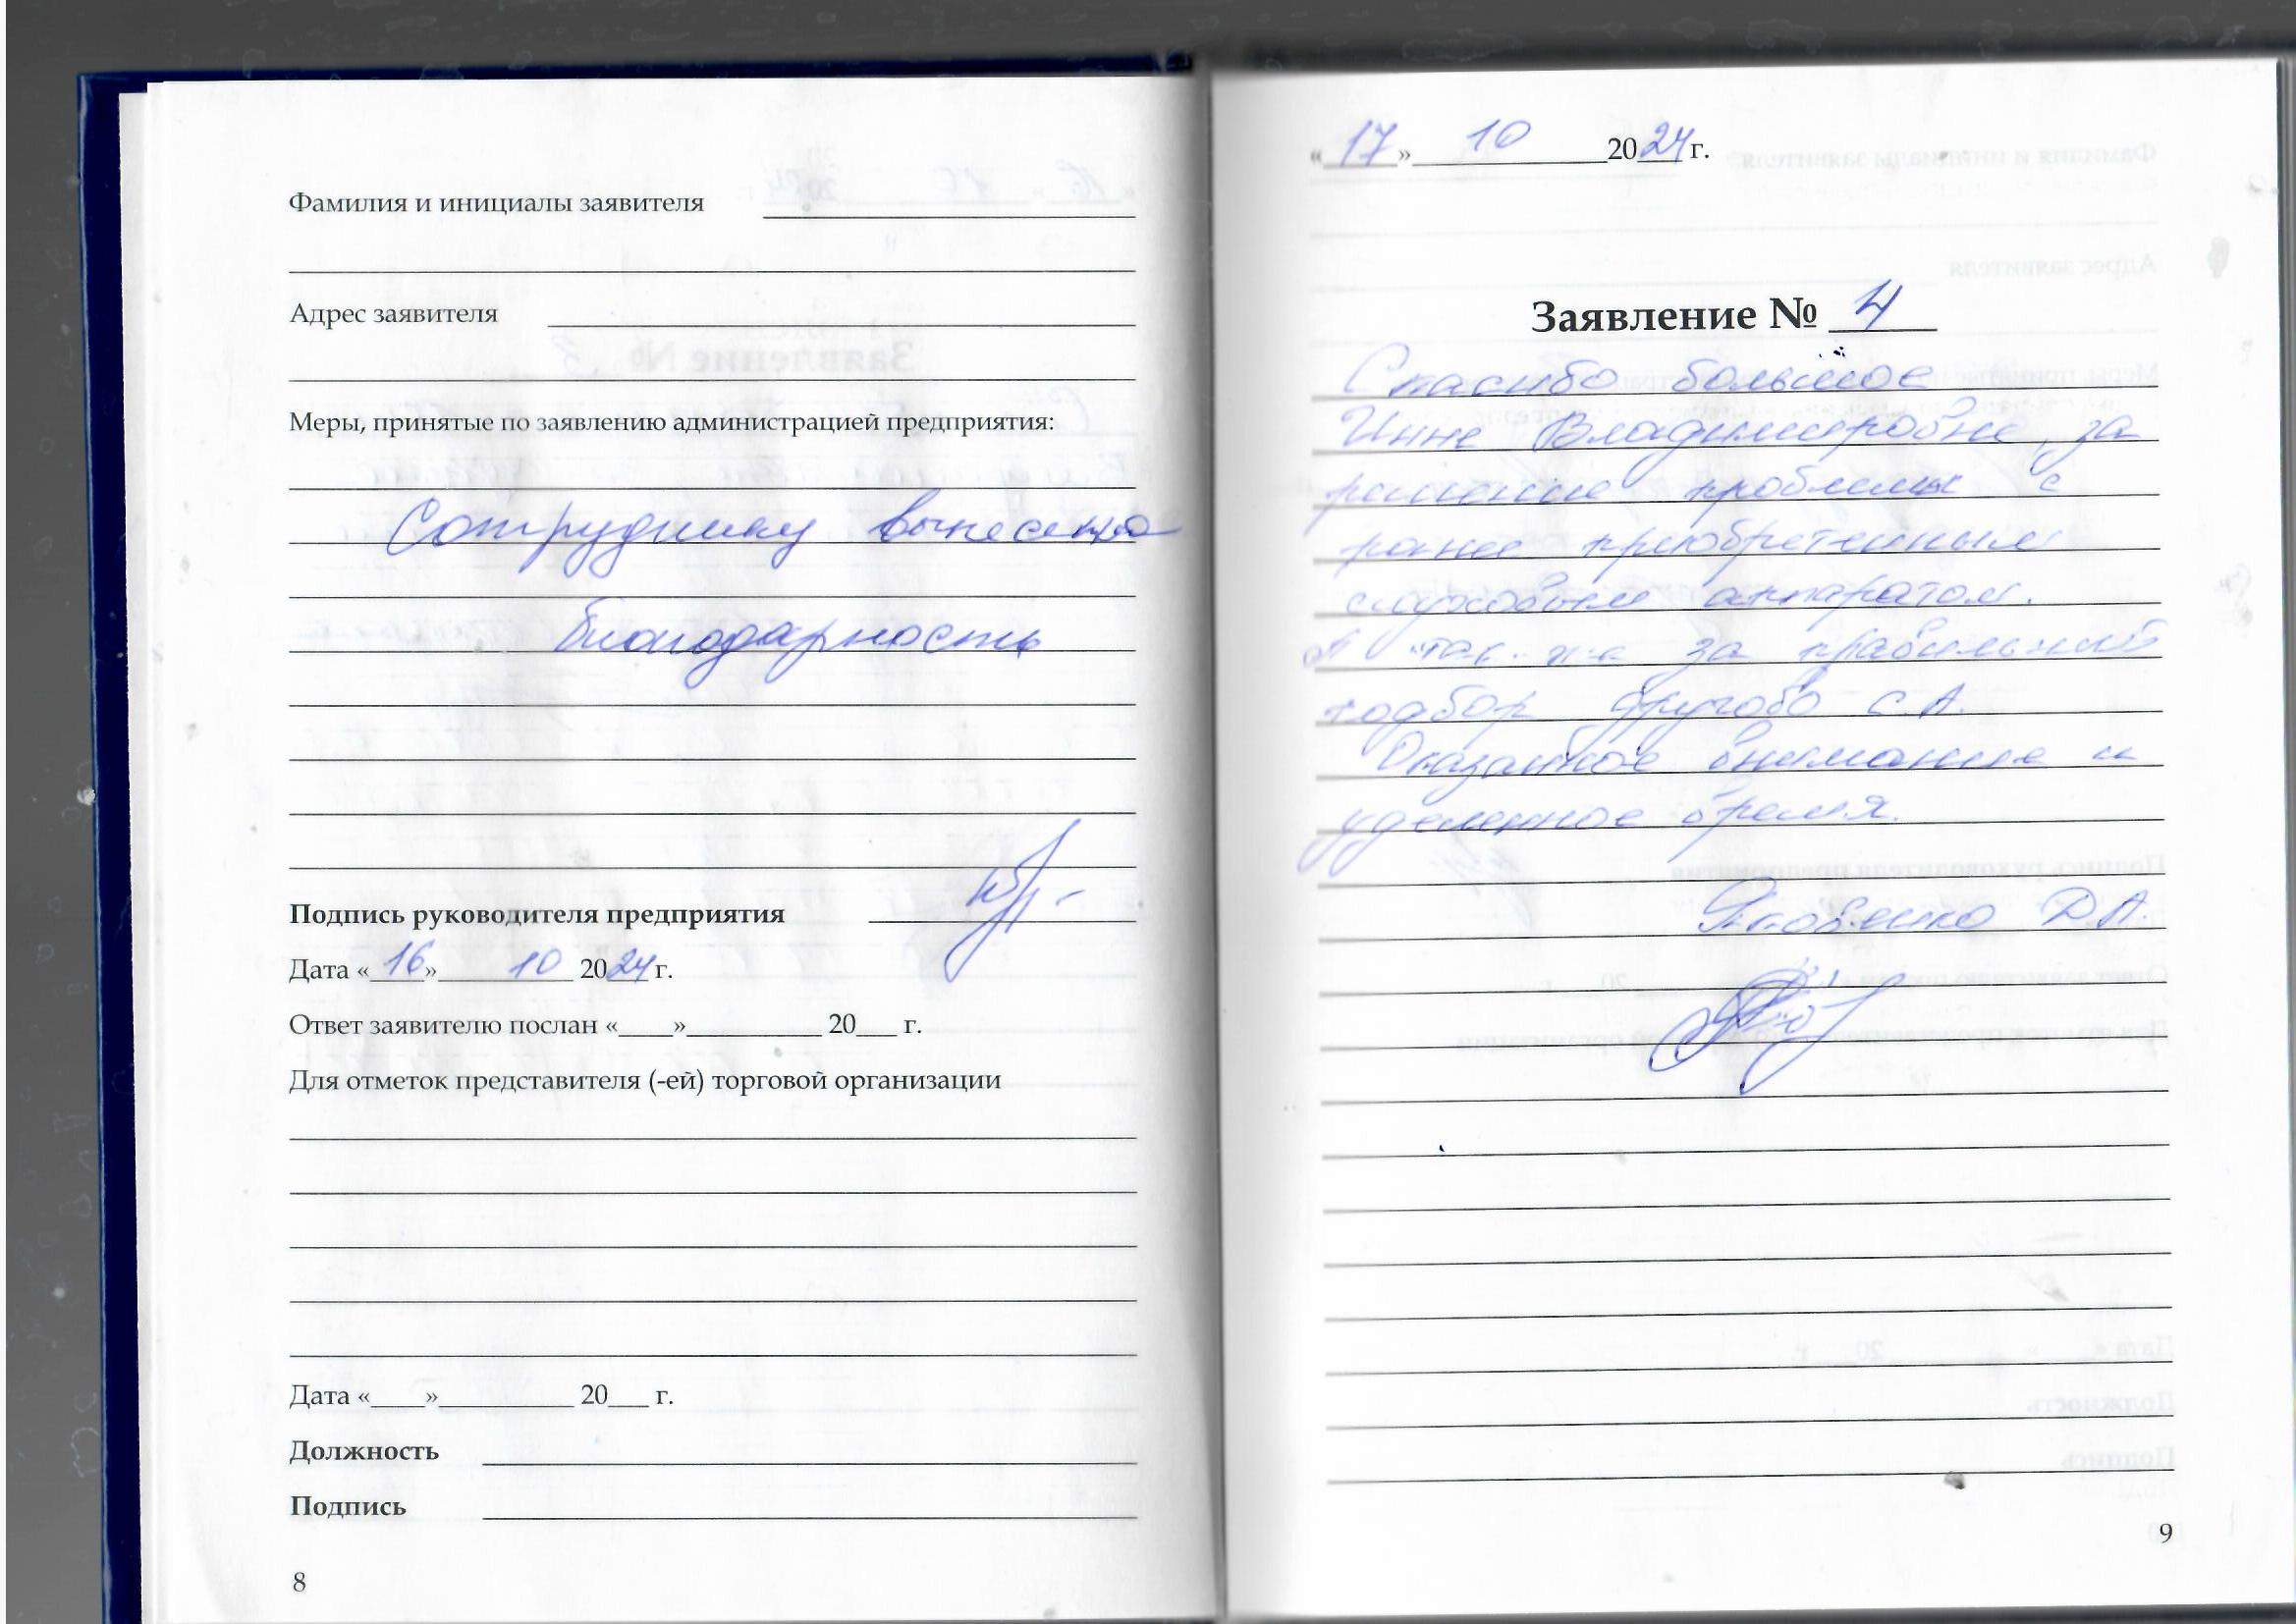 Фамилия и инициалы заявителя
Адрес заявителя
Меры, принятые по заявлению администрацией предприятия:
Сотруднику вынесена
благодарность
Подпись руководителя предприятия
Дата «16» 10 2024 г.
Ответ заявителю послан «____»__________ 20___ г.
Для отметок представителя (-ей) торговой организации
Дата «____»__________ 20___ г.
Должность
Подпись
8
«17» 10 2024 г.
Заявление № 4
Спасибо большое
Инне Владимировне, за
решение проблемы с
ранее приобретенным
слуховым аппаратом.
А так же за правильный
подбор другово С.А.
Оказанное внимание и
уделенное время.
Яковенко Д.А.
9